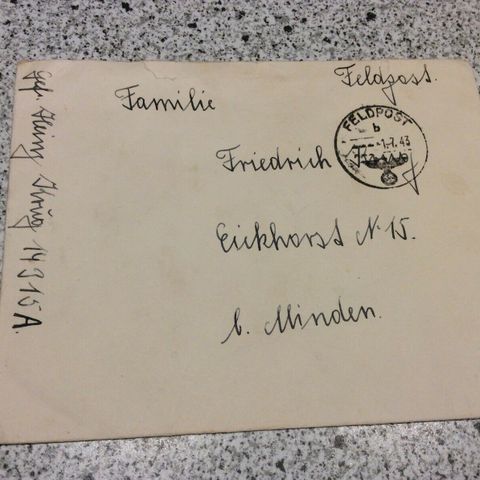 Feldpost.
Familie
FELDPOST
b
-1.7.43
Friedrich Krug
Eickhorst N 15.
b. Minden.
Krug 14915A.